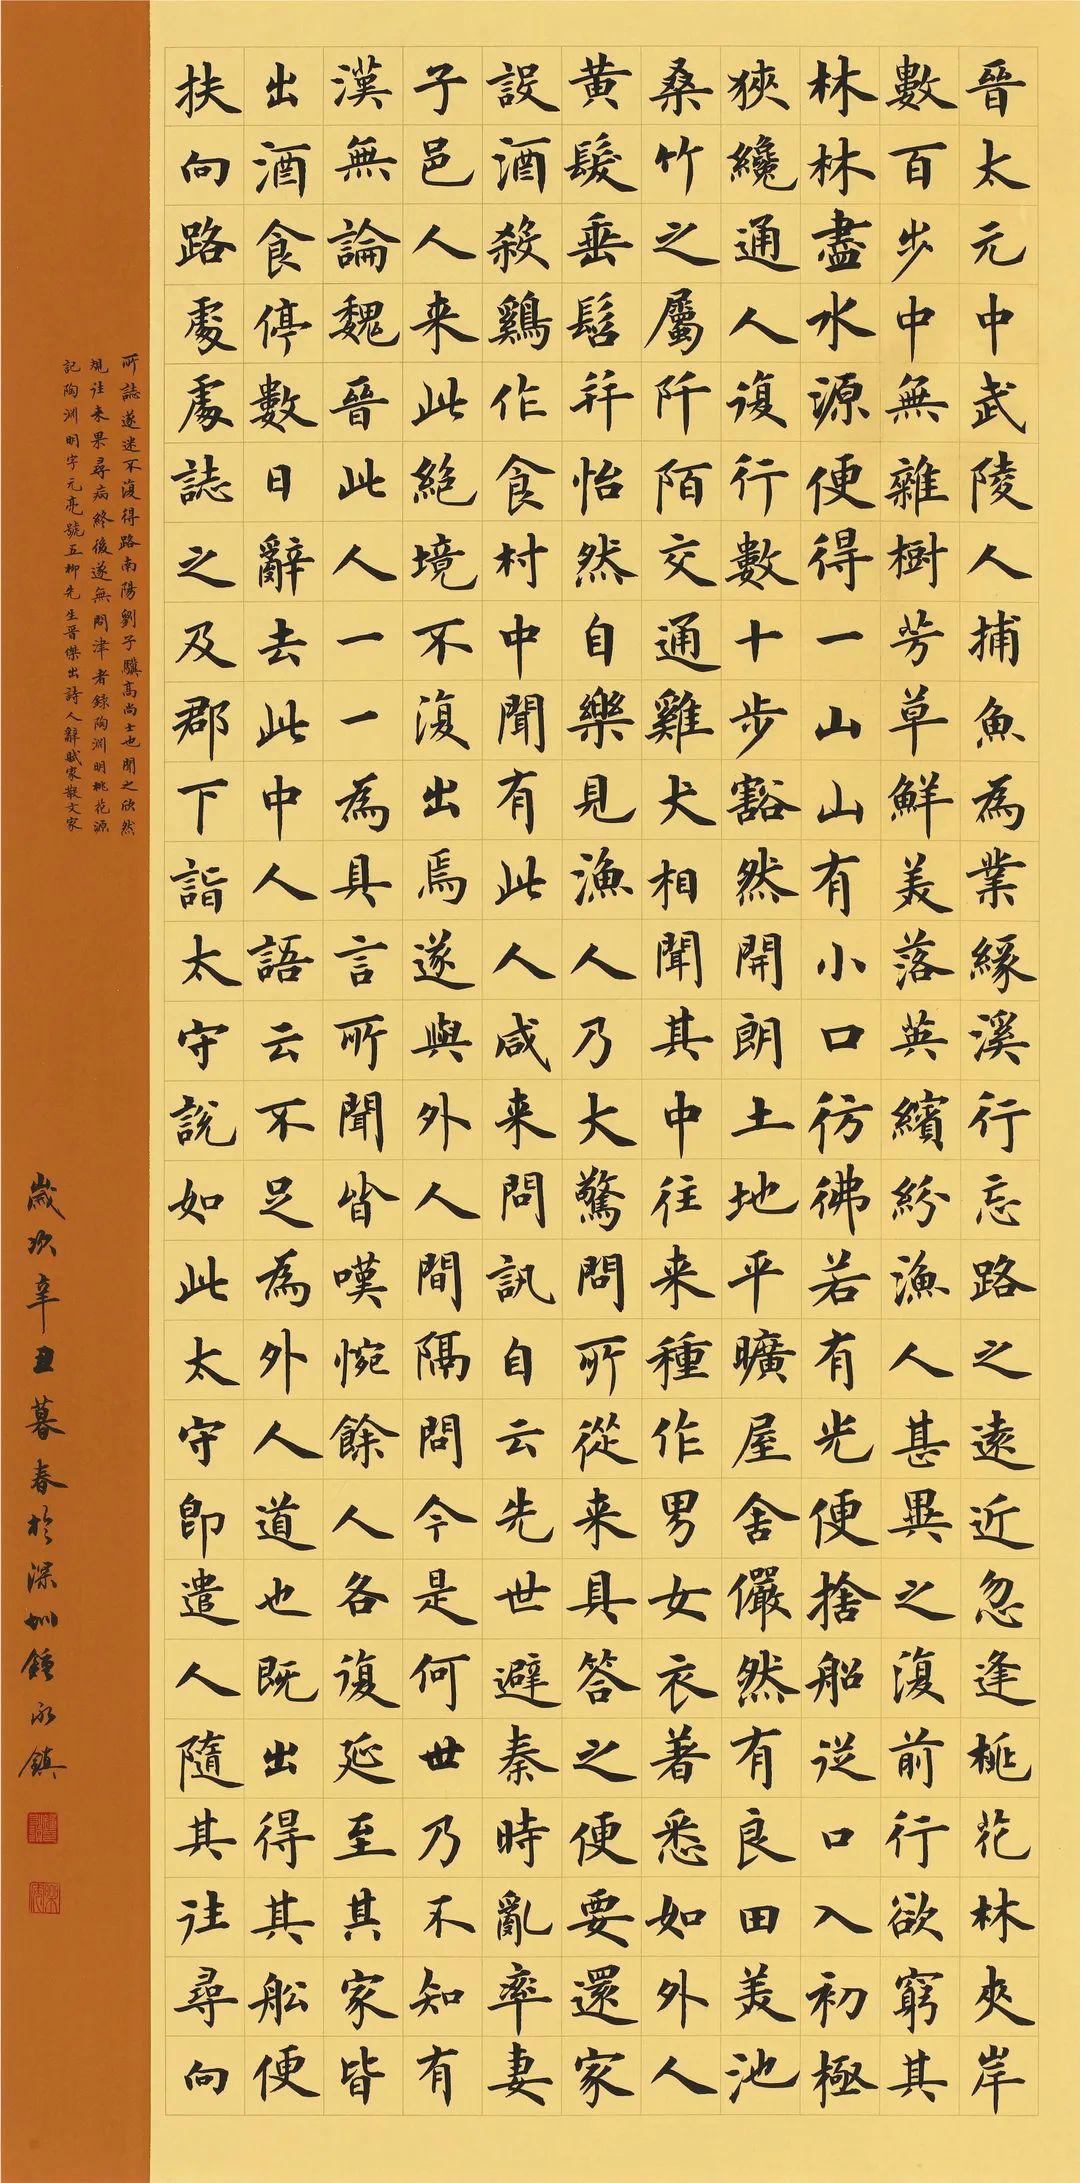 晉太元中武陵人捕魚為業緣溪行忘路之遠近忽逢桃花林夾岸
數百步中無雜樹芳草鮮美落英繽紛漁人甚異之復前行欲窮其
林林盡水源便得一山山有小口彷彿若有光便捨船從口入初極
狹纔通人復行數十步豁然開朗土地平曠屋舍儼然有良田美池
桑竹之屬阡陌交通雞犬相聞其中往来種作男女衣著悉如外人
黃髮垂髫并怡然自樂見漁人乃大驚問所從来具答之便要還家
設酒殺鷄作食村中聞有此人咸来問訊自云先世避秦時亂率妻
子邑人来此絕境不復出焉遂與外人間隔問今是何世乃不知有
漢無論魏晉此人一一為具言所聞皆嘆惋餘人各復延至其家皆
出酒食停數日辭去此中人語云不足為外人道也既出得其船便
扶向路處處誌之及郡下詣太守說如此太守即遣人隨其往尋向
所誌遂迷不復得路南陽劉子驥高尚士也聞之欣然
規往未果尋病終後遂無問津者錄陶淵明桃花源
記陶淵明字元亮號五柳先生晉傑出詩人辭賦家散文家
歲次辛丑暮春於深圳鍾永鎮